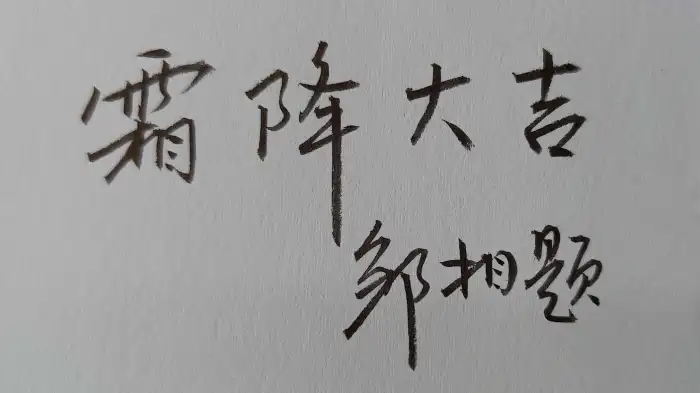 霜降大吉
邹相题